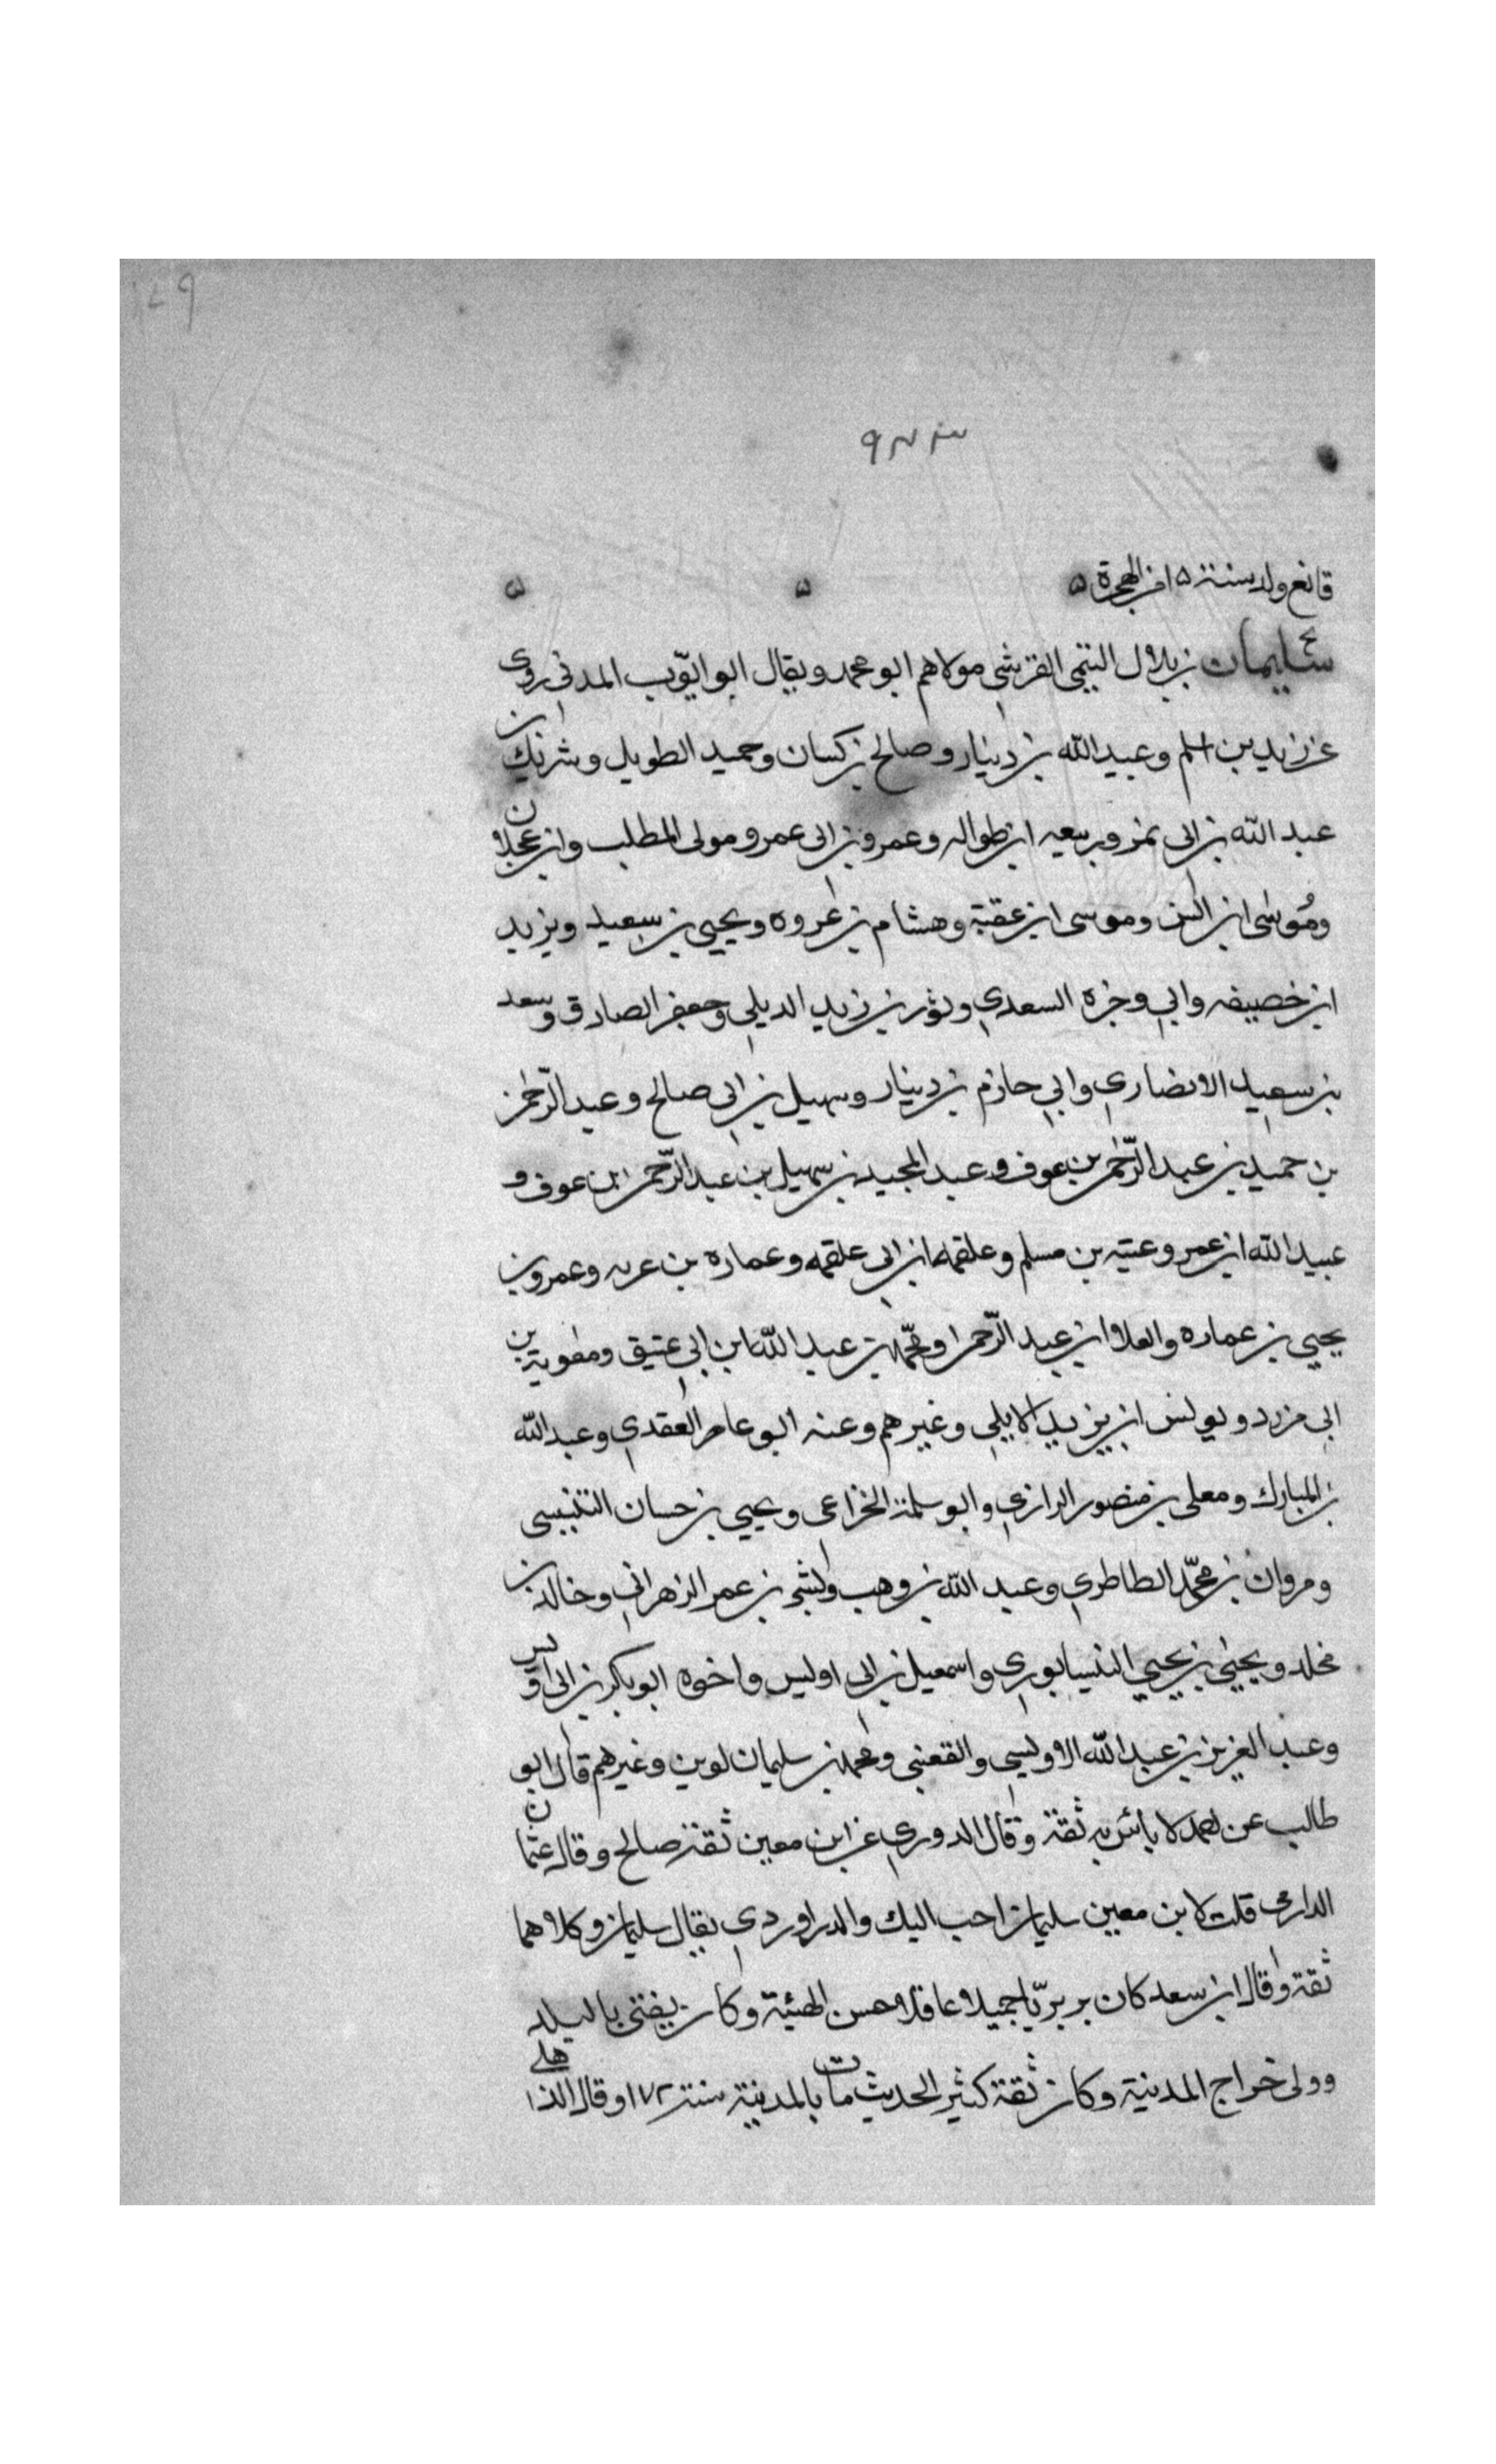 قانع ولد سنة ١٥ من الهجرة
سليمان بن بلال التيمى القرشى مولاهم ابو محمد ويقال ابو ايوب المدنى روى
عن زيد بن اسلم وعبد الله بن دينار وصالح بن كسان وحميد الطويل وشريك بن
عبد الله بن ابى نمر وربيعه ابن طواله وعمرو بن ابى عمرو ومولى المطلب وابن عجلان
وموسى ابن انس وموسى ابن عقبة وهشام بن عروه ويحيى بن سعيد ويزيد
ابن خصيفه وابى وجزه السعدي وثور بن زيد الديلى وجعفر الصادق وسعد
بن سعيد الانصارى وابى حازم بن دينار وسهيل بن ابى صالح وعبد الرحمن
بن حميد بن عبد الرحمن بن عوف وعبد المجيد بن سهيل بن عبد الرحمن ابن عوف و
عبيد الله ابن عمر وعتبه بن مسلم وعلقمه ابن ابى علقمه وعماره بن غزيه وعمرو بن
يحيى بن عماره والعلا ابن عبد الرحمن ومحمد بن عبد الله ابن ابى عتيق ومعوية بن
ابى مزرد ويونس ابن يزيد الايلى وغيرهم وعنه ابو عامر العقدي وعبد الله
بن المبارك ومعلى بن منصور الرازي وابو سلمة الخزاعى ويحيى بن حسان التنيسى
ومروان بن محمد الطاطري وعبد الله بن وهب وبشر بن عمر الزهرانى وخالد بن
مخلد ويحيى بن يحيى النيسابورى واسمعيل بن ابى اويس واخوه ابو بكر بن ابى اويس
وعبد العزيز بن عبد الله الاويسى والقعنبى ومحمد بن سليمان لوين وغيرهم قال ابو
طالب عن احمد لا بائس به ثقة وقال الدوري عن ابن معين ثقة صالح وقال عثمان
الدارمى قلت لابن معين سليمان احب اليك والدراوردى يقال سليمان وكلاهما
ثقة وقال ابن سعد كان بربريّا جميلا عاقلا حسن الهيئة وكان يفتى بالبلد
وولى خراج المدنية وكان ثقة كثير الحديث مات بالمدينة سنة ١٧٢ وقال الذهلى